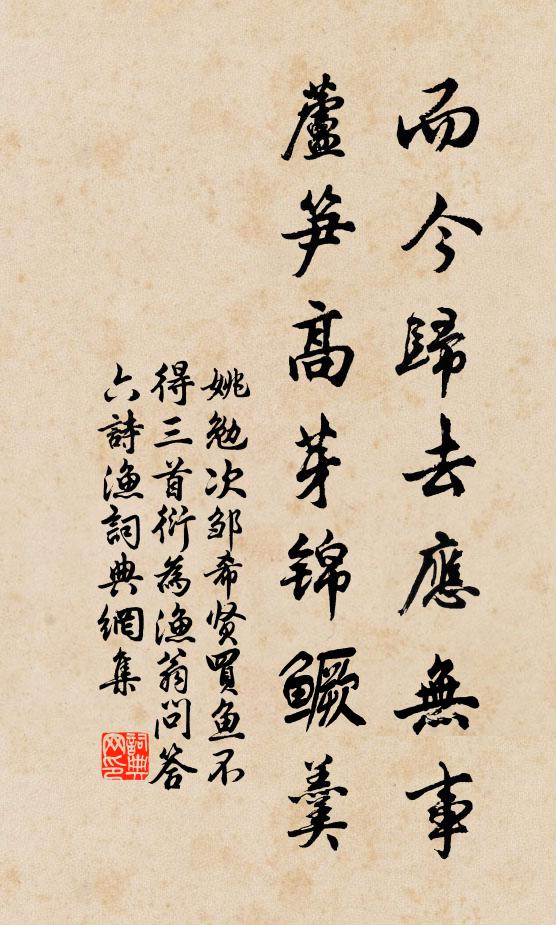 而今歸去應無事
蘆笋高芽錦鱖羹
姚勉次邹希贤買鱼不
得三首衍為漁翁問答
六詩漁詞典網集
詞典網印